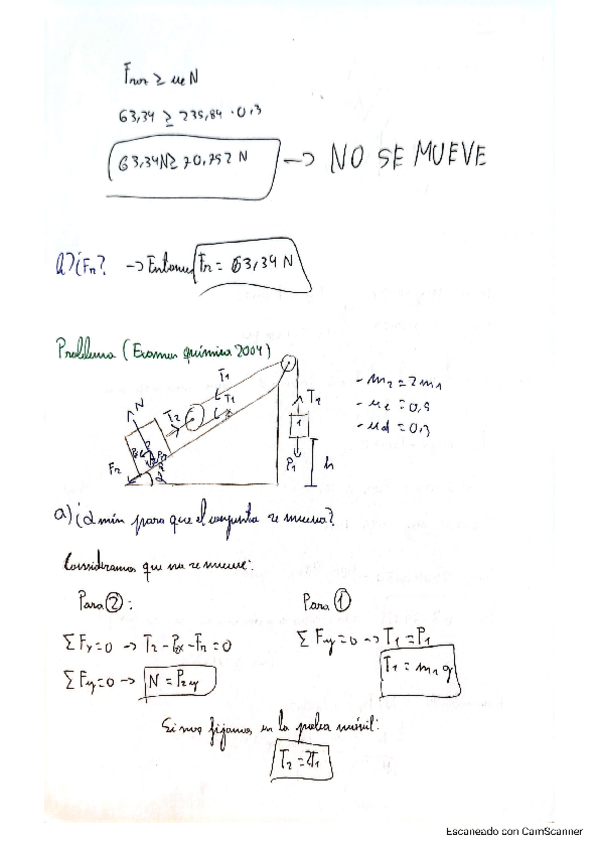 Froz ≥ μe N
63,34 ≥ 235,84 · 0,3
63,34N ≥ 70,752 N → NO SE MUEVE
a) ¿Fr? → Entonces Fr = 63,34 N
Problema (Examen química 2004)
T1
N T2 T1 T1
Fr α P1 h
- m2 = 2m1
- μe = 0,5
- μd = 0,3
a) ¿α mín para que el conjunto se mueva?
Consideramos que no se mueve:
Para ②: Para ①
ΣFx=0 → T2 - P2x - Fr = 0 ΣFy=0 → T1 = P1
ΣFy=0 → N = P2y T1 = m1 g
Si nos fijamos en la polea móvil:
T2 = 2T1
Escaneado con CamScanner